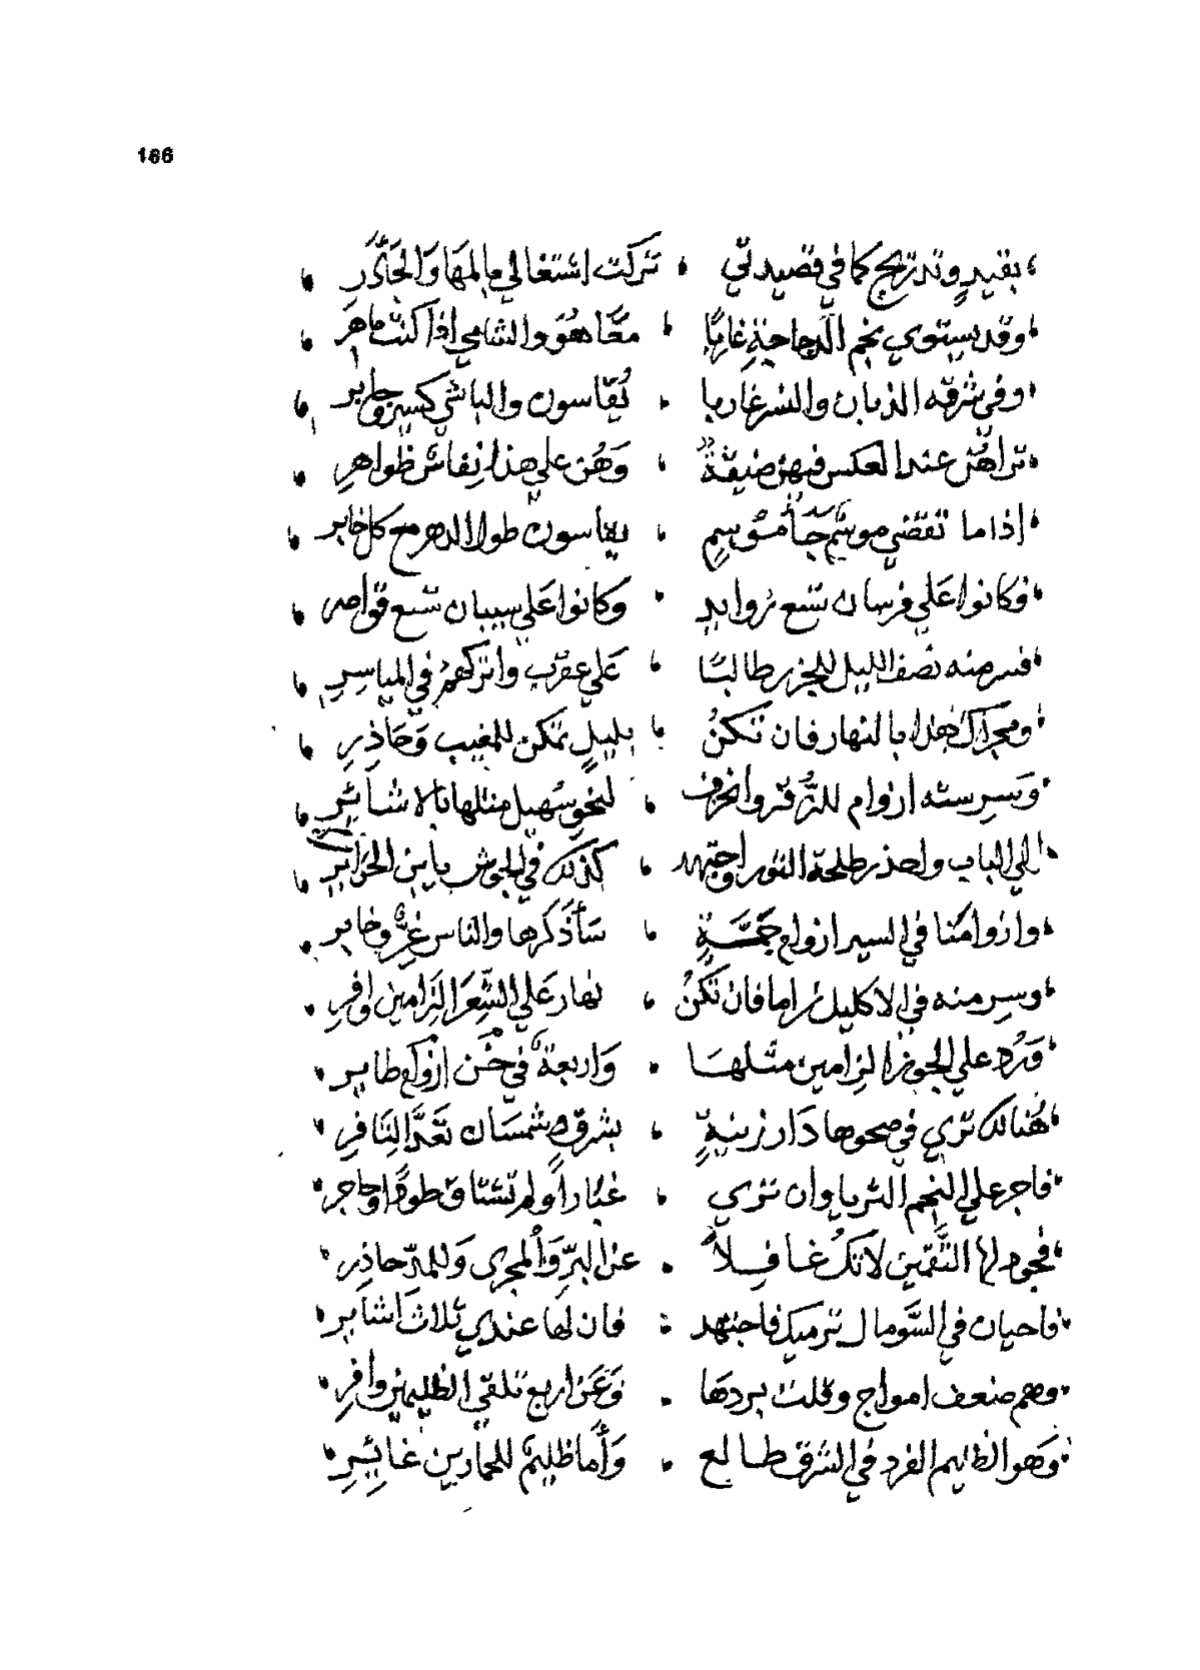 166
بقيدٍ وتدريج كما في قصيدتي ، تركت اشتغالي بالمها والجآذر
وقد يستوي نجم الدجاجة غاربًا ، معًا هُوَ والشامي اذا كنت ماهر
وفي شرقه الذبان والنسر غاربا ، تُقاسون والباشي كسير وجابر
تراهن عند العكس فيهن ضيقةٌ ، وَهُن علي هذا نِفاسٌ ظواهرِ
إذا ما تقضي موسم جا موسمٍ ، يقاسون طول الدهر مع كل خابر
فكانوا عَلي فرسان تسع زوايد ، وكانوا عَلي سيبان تسع قواصر
فسر منه نصف الليل للجزر طالبًا ، عَلي عقرب واتركهم في المياسرِ
ومجراك هذا بالنهار فان تكنُ ، بليلٍ تمكن للمغيب وَحَاذِرِ
وَسِر ستة ازوام للزُّقر وانحرف ، لنحو سُهيل مثلها بالاشائِر
الي الباب واحذر طلحة الثور واجتهد ، كذلك في الجوش يابن الحرائر
وازوامُنا في السير ازوام جَمَّةٍ ، سَأذكرها والناس غِرٌّ وخابر
وسر منه في الاكليل زاما فان تكنُ ، نهار عَلي الشِّعرَا الزامين وافرِ
وَرُد علي الجوزا الزامين مثلها ، وَاربعة في حُسن ازوام طاير
هُنالك تري في صحوها دَار زينةٍ ، بشرقٍ شمسَان تعَدّ النَافرِ
فاجر علي النجم الثريا وان تري ، غبُارًا ولم تشتاق طودًا وحاجر
فجود لها التَّقمين لا تكُ غافِلاً ، عن البرِّ وَالمجري وَللمدّ حاذِر
فاحيان في السَّومال ترميك فاجتهد ، فان لها عندي ثلاث اشاير
وهم ضعف امواج وقلت بردهَا ، وَعَن اربع تلقي الظليمين وافرِ
وَهو الظليم الفرد في الشرق طالع ، وَأما ظليمٌ للحمارين غائِرِ